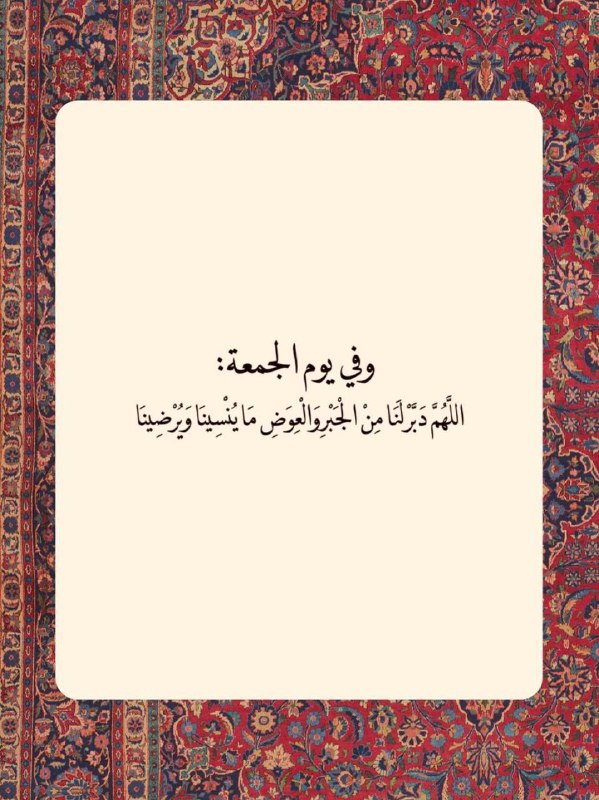 وفي يوم الجمعة:
اللَّهُمَّ دَبَّرْ لَنَا مِنْ الْجَبْرِ وَالْعِوَضِ مَا يُنْسِينَا وَيُرْضِينَا